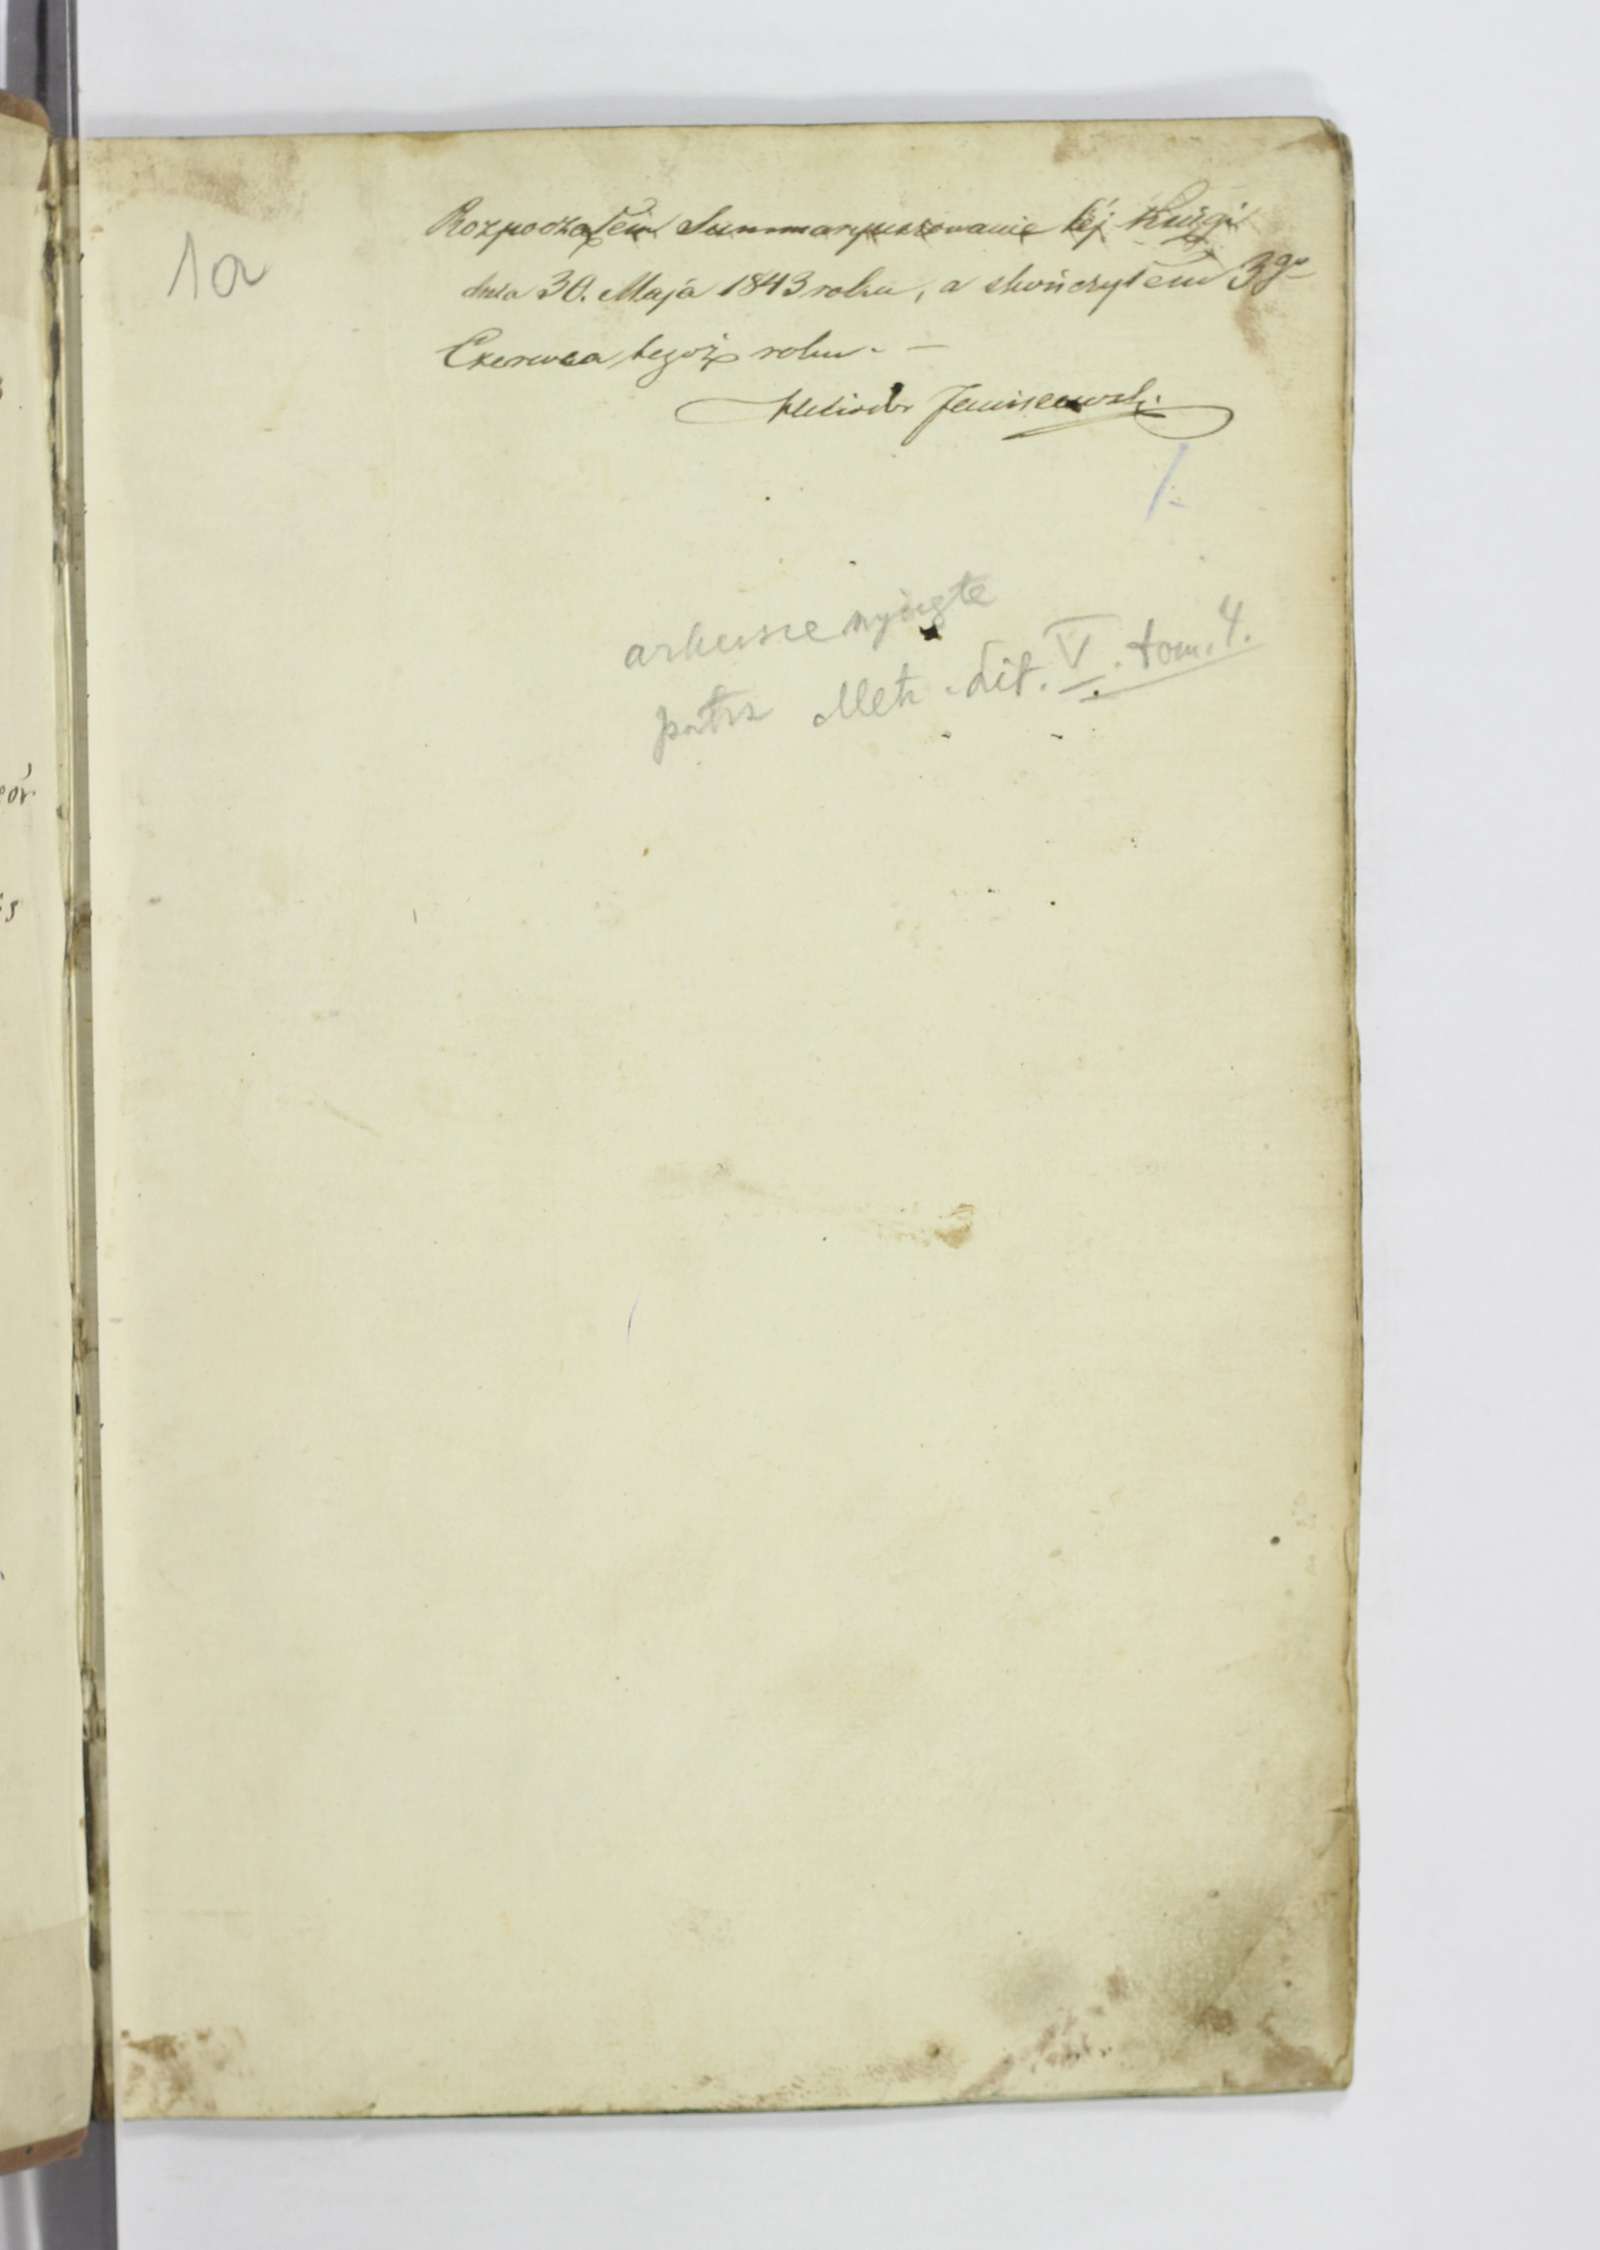 1a
Rozpocząłem Summaryuszowanie téj Księgi
dnia 30. Maja 1843 roku, a skończyłem 3go
Czerwca tegoż roku. —
1.
arkusze wyjęte
patrz Metr. Lit. V. tom. 4.